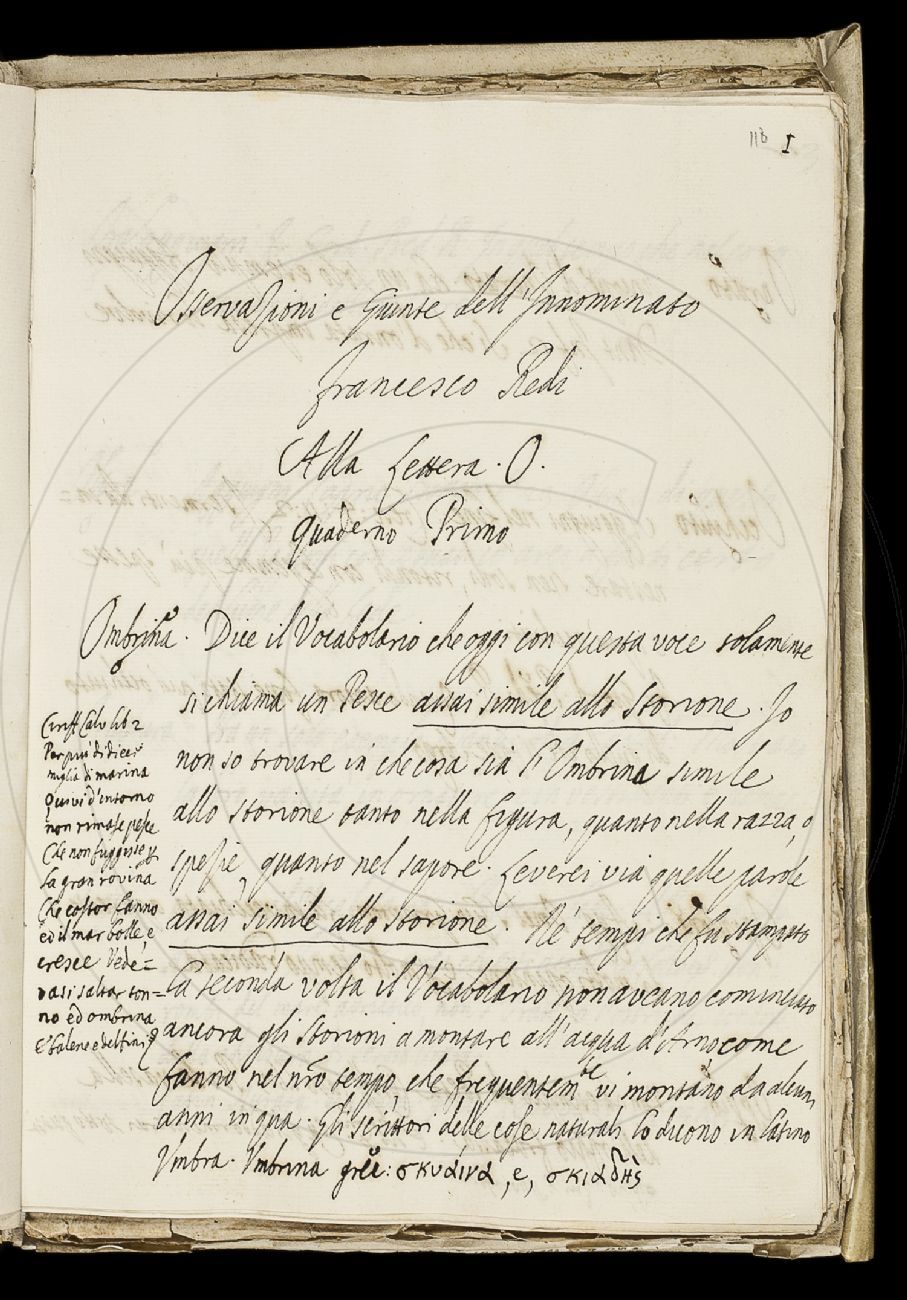 118 I
Osservazioni e Giunte dell'Innominato
Francesco Redi
Alla Lettera. O.
quaderno Primo
Ombrina. Dice il Vocabolario che oggi con questa voce solamente
si chiama un Pesce assai simile allo Storione. Io
non so trovare in che cosa sia l'Ombrina simile
allo storione tanto nella figura, quanto nella razza, o
spezie, quanto nel sapore. Leverei via quelle parole
assai simile allo storione. Ne' tempi che fu stampato
la seconda volta il Vocabolario non aveano cominciato
ancora gli storioni a montare all'acqua d'Arno come
fanno nel nrõ tempo, che frequentemte vi montano da alcuni
anni in qua. Gli scrittori delle cose naturali lo dicono in latino
Vmbra. Vmbrina grec: σκυάινα, e,
Ciriff Calv lib 2
Per piu di dieci
miglia di marina
Quivi d'intorno
non rimase pesce
Che non fuggisse
la gran rovina
Che costor fanno
ed il mar bolle, e
cresce Vede=
vasi saltar ton=
no ed ombrina
E balene e delfini